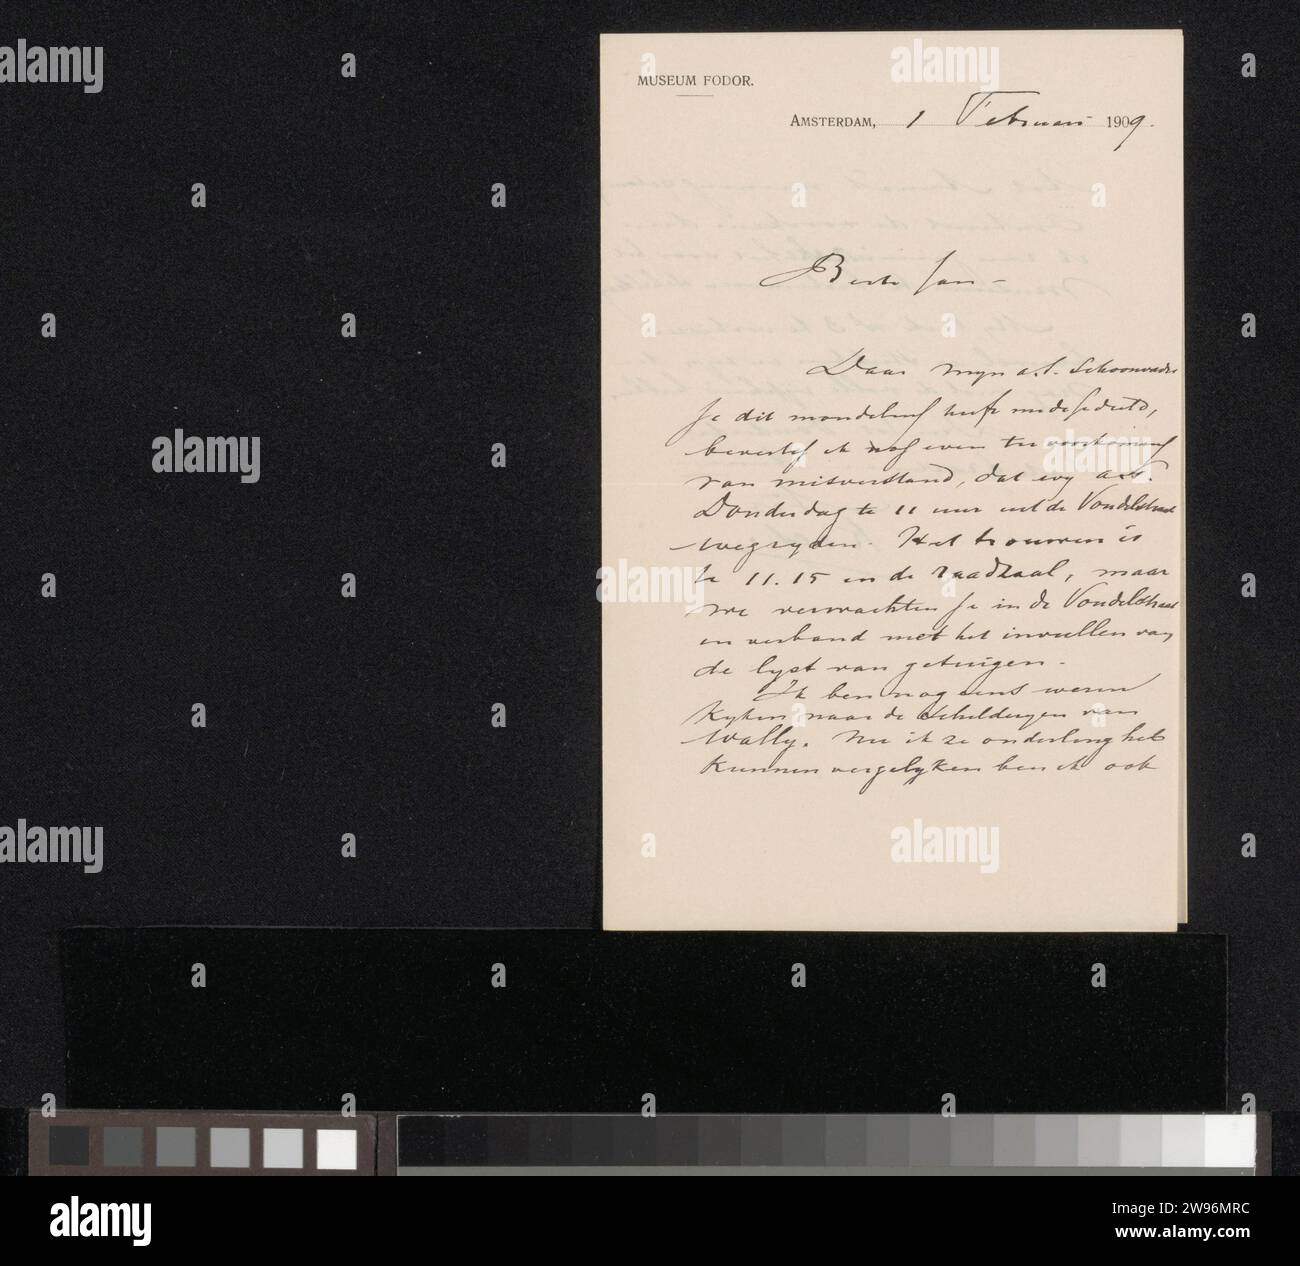 MUSEUM FODOR.
AMSTERDAM, 1 Februari 1909.
Beste Jan -
Daar mijn a.s. Schoonvader
je dit mondeling heeft medegedeeld,
bevestig ik nog even ter voorkoming
van misverstand, dat wy a.s.
Donderdag te 11 uur uit de Vondelstraat
wegryden. Het trouwen is
te 11.15 in de raadzaal, maar
we verwachten je in de Vondelstraat
in verband met het invullen van
de lyst van getuigen.
Ik ben nog eens weren
kyken naar de schilderyen van
Wally. Nu ik ze onderling heb
kunnen vergelyken ben ik ook
alamy
Image ID: 2W96MRC
www.alamy.com